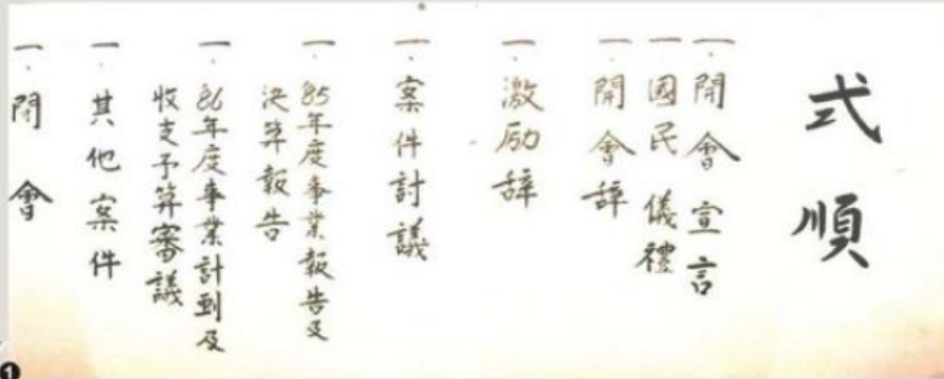 式順
一. 開會宣言
一. 國民儀禮
一. 開會辞
一. 激励辞
一. 案件討議
一. 85年度事業報告及
決算報告
一. 86年度事業計劃及
收支予算審議
一. 其他案件
一. 閉會
1